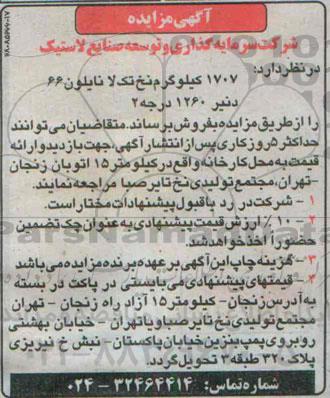 آگهی مزایده
شرکت سرمایه گذاری و توسعه صنایع لاستیک
در نظر دارد:
۱۷۰۷ کیلوگرم نخ تک لا نایلون ۶۶
دنیر ۱۲۶۰ درجه ۲
را از طریق مزایده بفروش برساند. متقاضیان می توانند
حداکثر ۵ روز کاری پس از انتشار آگهی، جهت بازدید و ارائه
قیمت به محل کارخانه واقع در کیلومتر ۱۵ اتوبان زنجان
-تهران، مجتمع تولیدی نخ تایر صبا مراجعه نمایند.
۱ - شرکت در رد یا قبول پیشنهادات مختار است.
۲ - ۱۰٪ ارزش قیمت پیشنهادی به عنوان چک تضمین
حضورا اخذ خواهد شد.
۳ - هزینه چاپ این آگهی بر عهده برنده مزایده می باشد
۴ - قیمتهای پیشنهادی می بایستی در پاکت در بسته
به آدرس زنجان - کیلومتر ۱۵ آزاد راه زنجان - تهران
مجتمع تولیدی نخ تایر صبا و یا تهران - خیابان بهشتی
روبروی پمپ بنزین خیابان پاکستان - نبش خ نیریزی
پلاک ۳۲۰ طبقه ۳ تحویل گردد.
شماره تماس: ۳۲۴۶۴۴۱۴ - ۰۲۴